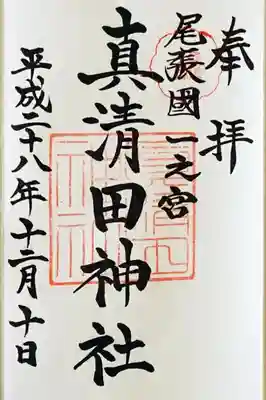 奉拝
尾張國一之宮
真清田神社
平成二十八年十二月十日